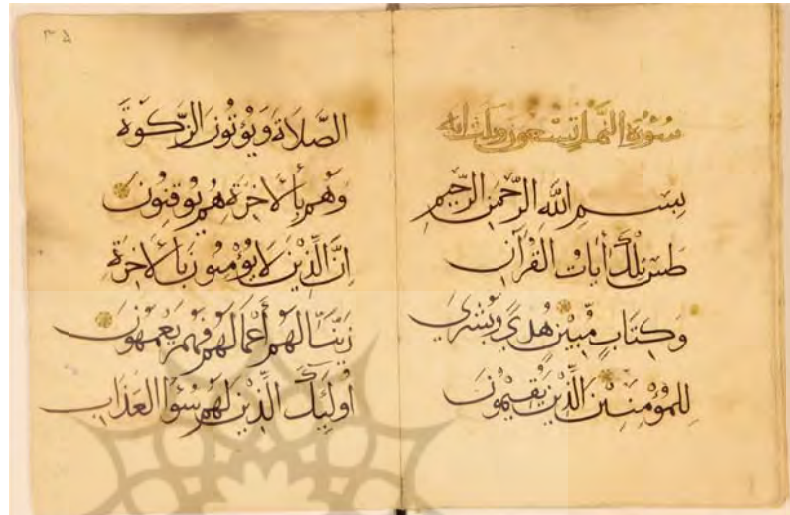 سُوْرَةُ النَّمْلِ تِسْعُوْنَ وَثَلٰثُ اٰيَةً
بِسْمِ اللهِ الرَّحْمٰنِ الرَّحِيْمِ
طٰسٓ تِلْكَ أٰيَاتُ القُرْآنِ
وَكِتَابٍ مُّبِيْنٍ هُدًى وَبُشْرَى
لِلمُؤْمِنِيْنَ الَّذِيْنَ يُقِيْمُوْنَ
الصَّلَاةَ وَيُؤْتُوْنَ الزَّكٰوةَ
وَهُمْ بِالْأٰخِرَةِ هُمْ يُوْقِنُوْنَ
اِنَّ الَّذِيْنَ لَا يُؤْمِنُوْنَ بِالْأٰخِرَةِ
زَيَّنَّا لَهُمْ أَعْمَالَهُمْ فَهُمْ يَعْمَهُوْنَ
أُولٰئِكَ الَّذِيْنَ لَهُمْ سُوْٓءُ العَذَابِ